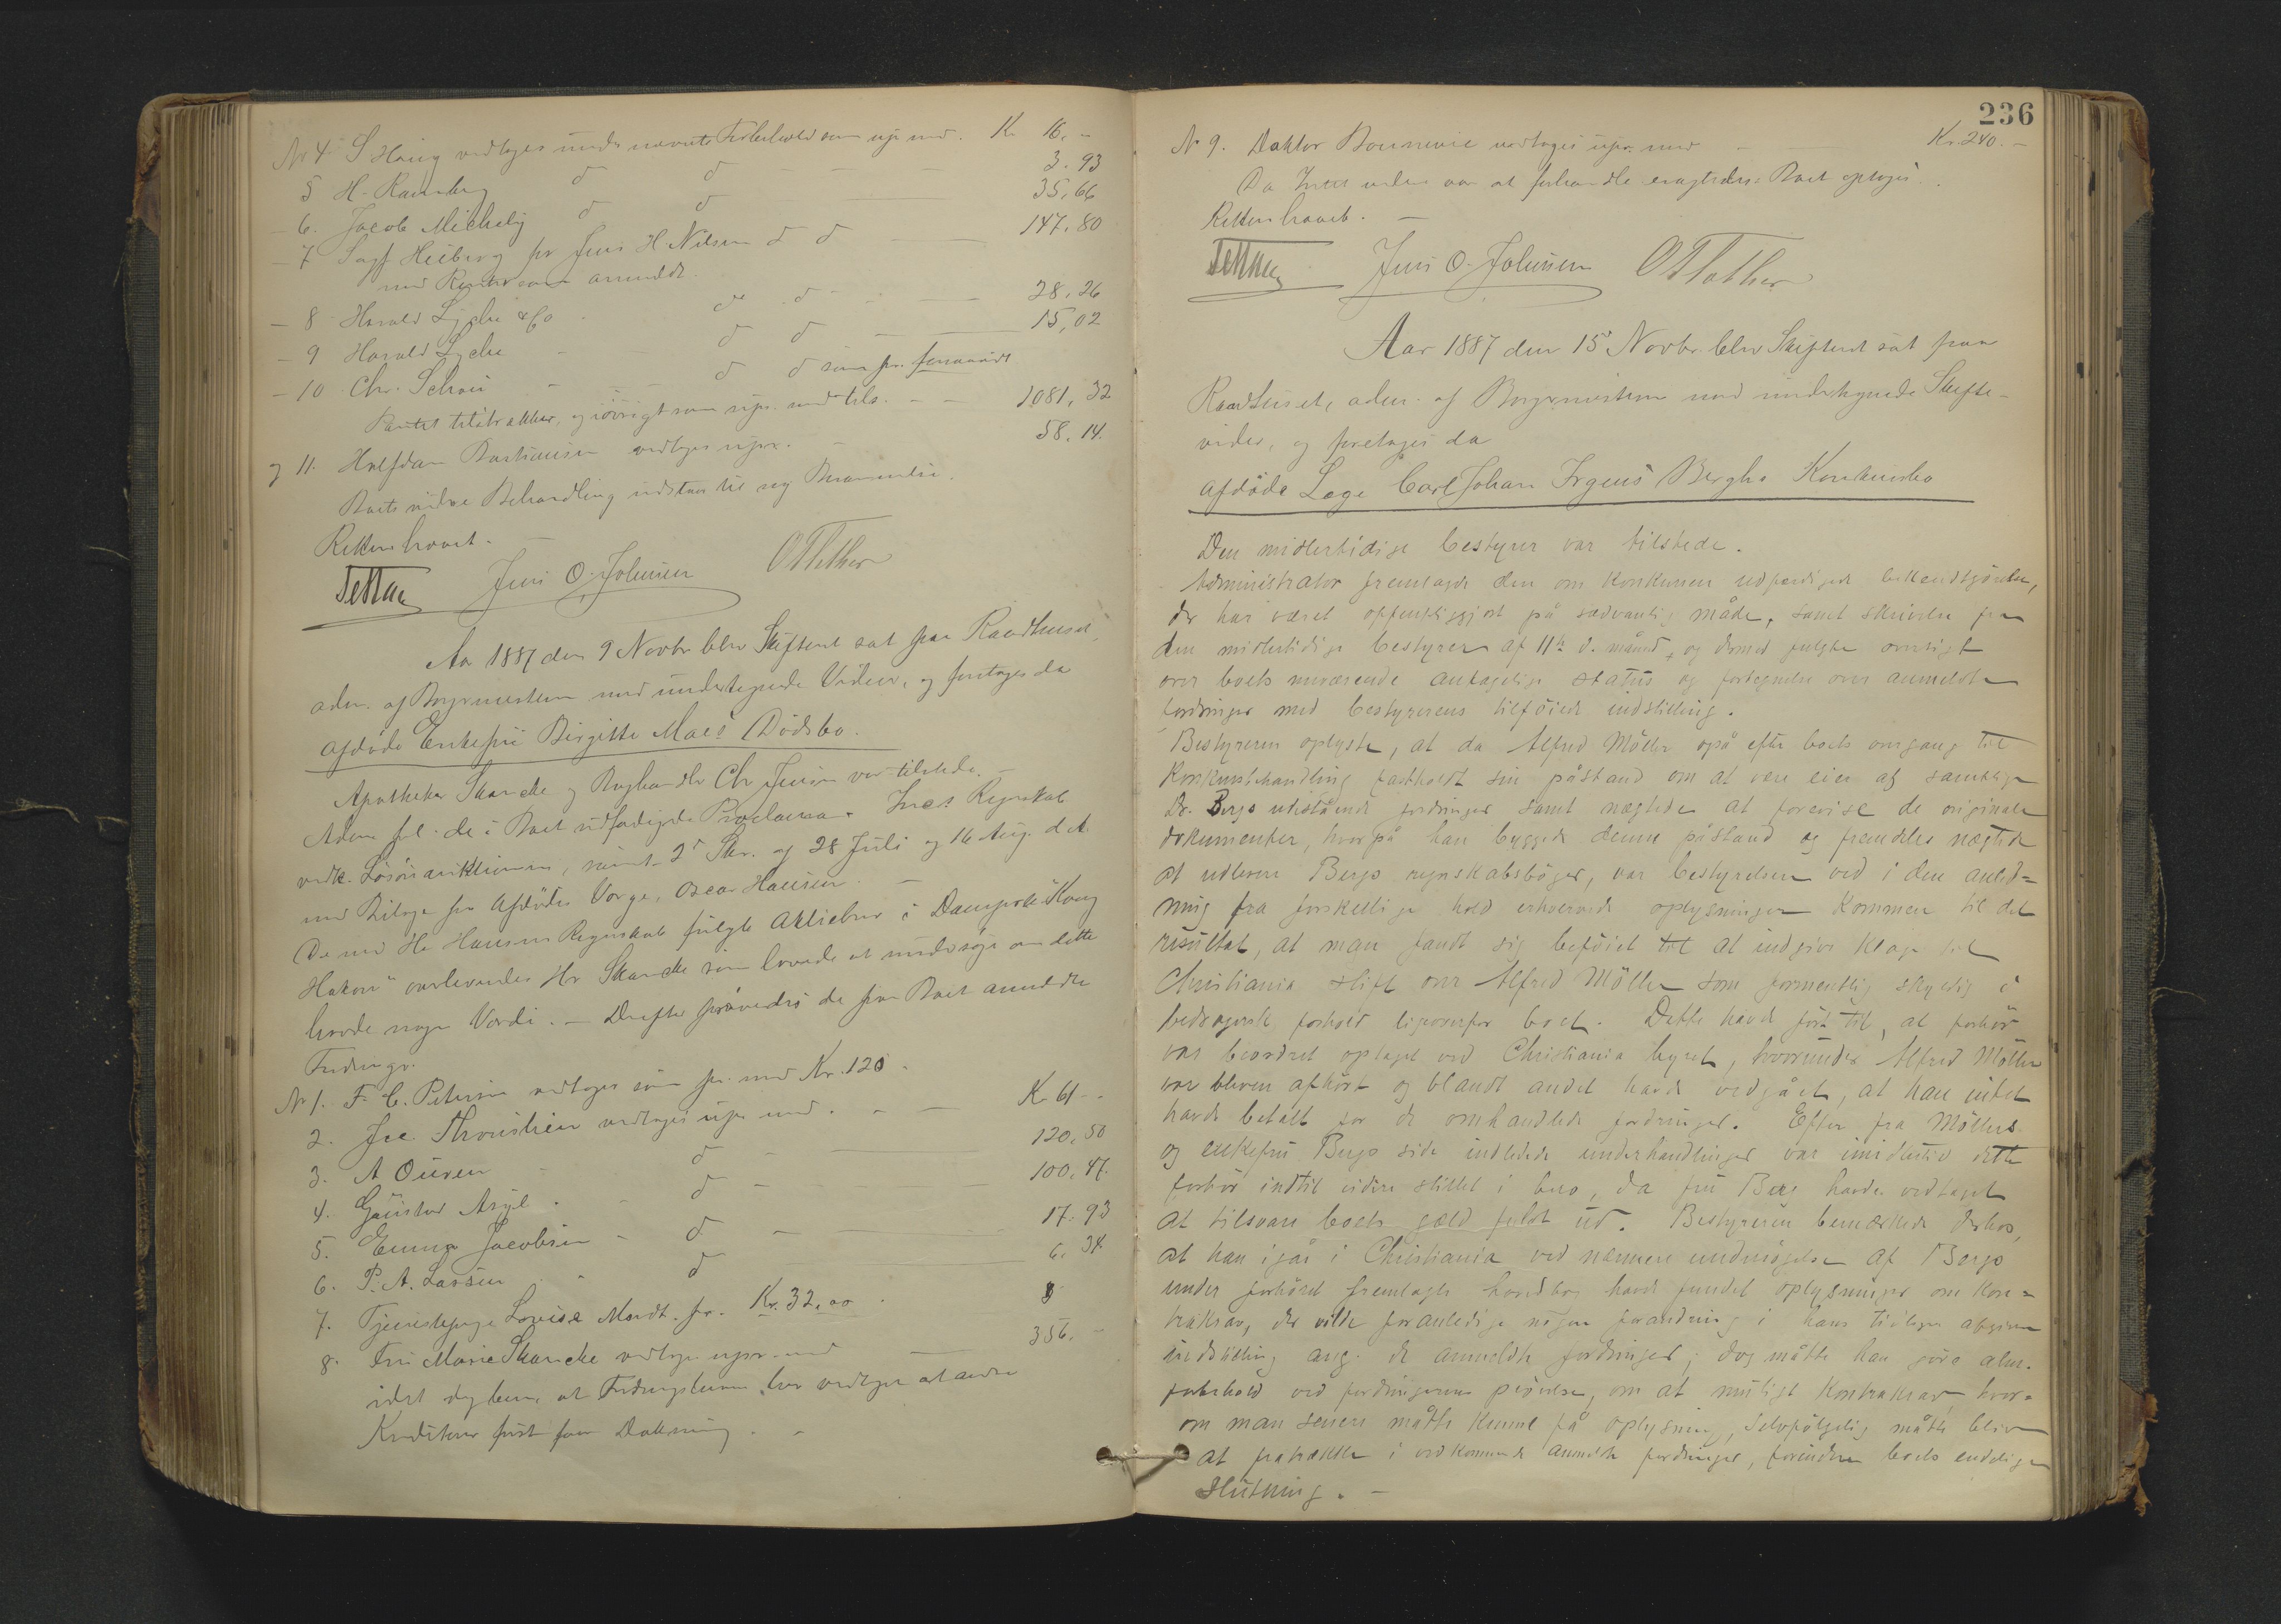 Nr 4 S Haug vedtages under nævnte Forbehold som upr. med. K 16. -
5 H. Ramberg d d 3.93
- 6. Jacob Michelig d d 35,66
- 7 Sagf Heiberg for Jens H. Nilsen d d 147,80
med Renter som anmeldt.
- 8 Harald Lyche & Co d d 28,26
- 9 Harald Lyche d d 15,02
- 10 Chr. Schou d d som pr.
Pantet tilstrækker, og iøvrigt som upr. med tils. 1081,32
og 11. Halfdan Bastiansen vedtages upr. 58,14.
Boets videre Behandling udstaar til ny Berammelse.
Retten hævet. -
Jens O. Johnsen
Aar 1887 den 9 Novbr blev Skifteret sat paa Raadhuset,
adm. af Borgermesteren med undertegnede Vidner, og foretoges da
afdøde Enkefru Birgitte Maes Dødsbo.
Apotheker Skancke og Boghandler Chr Jensen var tilstede. -
Adm. frl. de i Boet udfærdigede Proclama.
vedk. Løsøreauktionen, samt 2de Skr. af 28 Juli og 16 Aug. d. A.
med Bilage fra Afdødes Værge, Oscar Hansen. -
De med Hr Hansens Regnskab fulgte Aktiebrev i Dampsk. "Kong
Hakon" overleveredes Hr Skancke som lovede at undersøge om dette
havde nogen Værdi. - Derefter prøvedes de paa Boet anmeldte
Fordringer.
Nr 1. F. C. Petersen vedtages som pr. med Kr. 120.
2. Joe Thronsen vedtages upr. med. K 61 -
3. A Ouren d 120,50
4. Gustav d 100,47.
5. Emma Jacobsen d 17.93
6. P. A. Larsen d 6,34
7. Tjenestepige Lovise Mordt. pr. Kr. 32,00 8
8. Fru Marie Skancke vedtages upr. med 356. -
idet dog bem. at Fordringshaveren har vedtaget at andre
Kreditorer først faar Dækning. -
236
Nr 9. Doktor Bonnevie vedtoges upr. med Kr. 240. -
Da Intet videre var at forhandle eragtedes: Boet optages.
Retten hævet. -
Jens O. Johnsen
Aar 1887 den 15de Novbr. blev Skifteret sat paa
Raadhuset, adm. af Borgermesteren med undertegnede Skifte-
vidner, og foretoges da
afdøde Læge Carl Johan Irgens Berghs Konkursbo
Den midlertidige bestyrer var tilstede.
Administrator fremlagde den om konkursen udfærdigede bekendtgørelse,
der har været offentliggjort på sædvanlig måde, samt skrivelse fra
den midlertidige bestyrer af 11te d. måned, og dermed fulgte oversigt
over boets nuværende antagelige status og fortegnelse over anmeldte
fordringer med bestyrerens tilføiede indstilling.
Bestyreren oplyste, at da Alfred Möller også efter boets overgang til
konkursbehandling fastholdt sin påstand om at være eier af samtlige
Dr. Bergs udestående fordringer samt nægtede at forevise de originale
dokumenter, hvorpå han byggede denne påstand og fremdeles nægtede
at udlevere Bergs regnskabsbøger, var bestyrelsen ved i den anled-
ning fra forskellige hold erhvervede oplysninger kommen til det
resultat, at man fandt sig beføiet til at indgive klage til
Christiania stift over Alfred Möller som formentlig skyldig i
bedragersk forhold ligeoverfor boet. Dette havde ført til, at forhør
var beordret optaget ved Christiania byret, hvorunder Alfred Möller
var bleven afhørt og blandt andet havde vedgået, at han intet
havde betalt for de omhandlede fordringer. Efter fra Möllers
og enkefru Bergs side indledede underhandlinger var imidlertid dette
forhør indtil videre stillet i bero, da fru Berg havde vedtaget
at tilsvare boets gæld fuldt ud. Bestyreren bemærkede derhos,
at han igår i Christiania ved nærmere undersøgelse af Bergs
under forhøret fremlagte hovedbog havde fundet oplysninger om kon-
trakrav, der vilde foranledige nogen forandring i hans tidligere afgivne
indstilling ang. de anmeldte fordringer; dog måtte han gøre alm.
forbehold ved fordringernes prøvelse, om at muligt kontrakrav, hvor-
om man senere måtte kunne få oplysning, selvfølgelig måtte blive
at fratrække i vedkommende anmeldte fordringer, forinden boets endelige
slutning. -